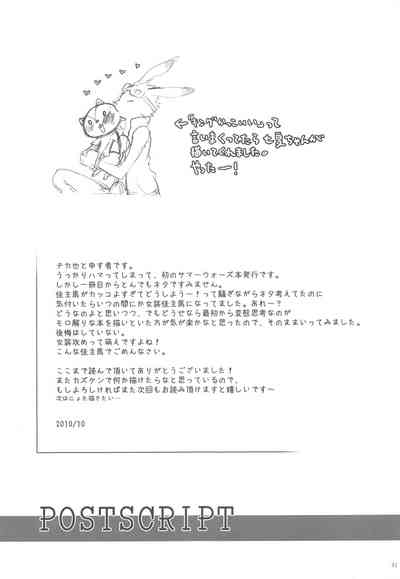 ←「キングかっこいい」って
言いまくってたら七夏ちゃんが
描いてくれました。
やったー!
チカ也と申す者です。
うっかりハマってしまって、初のサマーウォーズ本発行です。
しかし一冊目からとんでもネタですみません。
佳主馬がカッコよすぎてどうしよう―!って騒ぎながらネタ考えてたのに
気付いたらいつの間にか女装佳主馬になってました。あれー?
どうなのよと思いつつ、でもどうせなら最初から変態思考なのが
モロ解りな本を描いといた方が気が楽かなと思ったので、そのままいってみました。
後悔はしていない。
女装攻めって萌えですよね!
こんな佳主馬でごめんなさい。
ここまで読んで頂いてありがとうございました!
またカズケンで何か描けたらなと思っているので、
もしよろしければまた次回もお読み頂けますと嬉しいです~
次はにょた描きたい…
2010/10
POSTSCRIPT